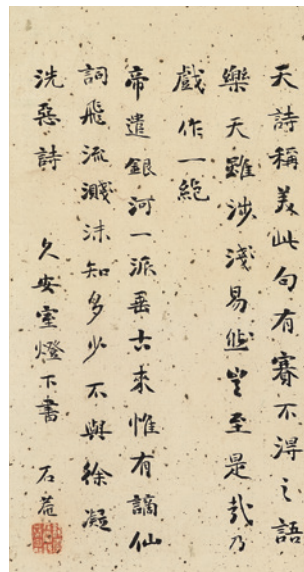 天詩稱美此句有賽不得之語
樂天雖涉淺易然豈至是哉乃
戲作一絶
帝遣銀河一派垂古來惟有謫仙
詞飛流濺沫知多少不與徐凝
洗惡詩
久安室燈下書 石菴